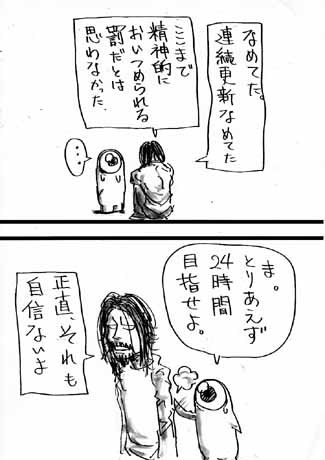 なめてた。
連続更新なめてた
ここまで
精神的に
おいつめられる
罰だとは
思わなかった
…
ま。
とりあえず
24時間
目指せよ。
正直、それも
自信ないよ